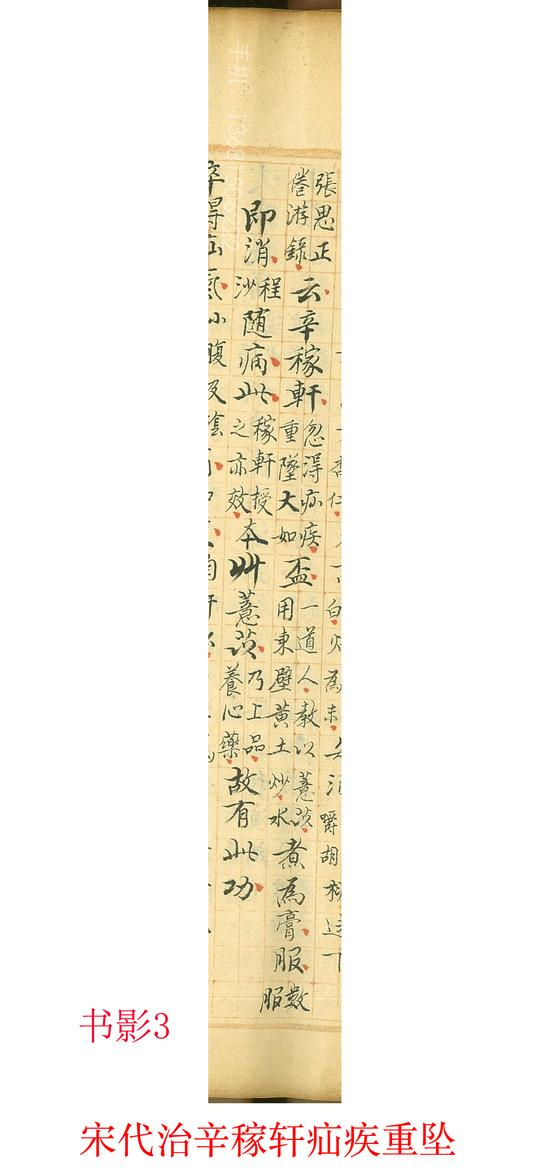 嚼胡
張思正倦游錄云辛稼軒忽得疝疾重墜大如盃一道人教以薏苡用東壁黃土炒水煮為膏服數服
即消程沙随病此稼軒授之亦效本艸薏苡乃上品養心藥故有此功
卒得疝氣小腹及陰
书影3
宋代治辛稼轩疝疾重坠